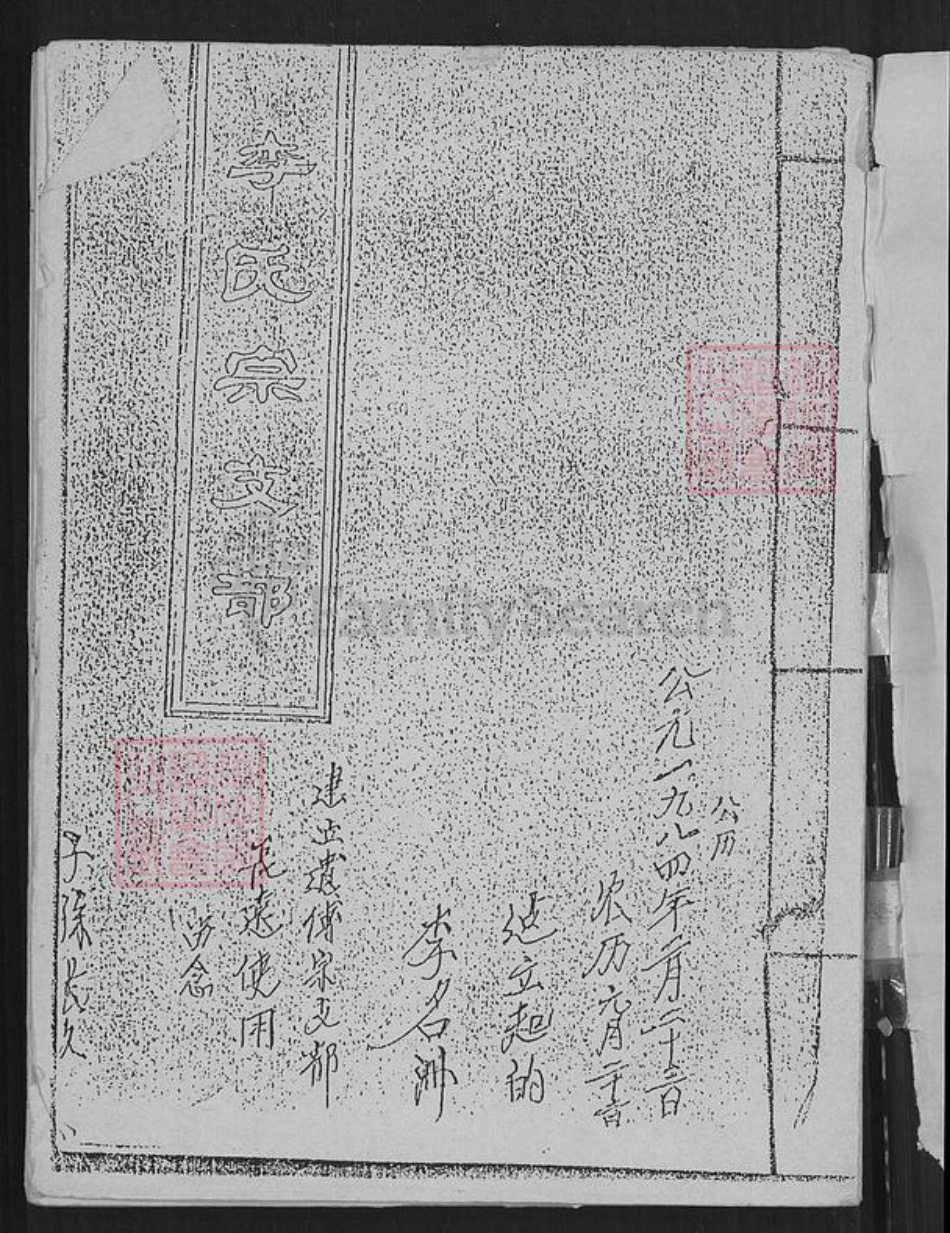 公历
公元一九八四年二月二十二日
农历元月二十一日
建立起的
李名洲
建立遗传宗支部
永远使用
留念
子孫长久
李氏宗支部
FamilySearch